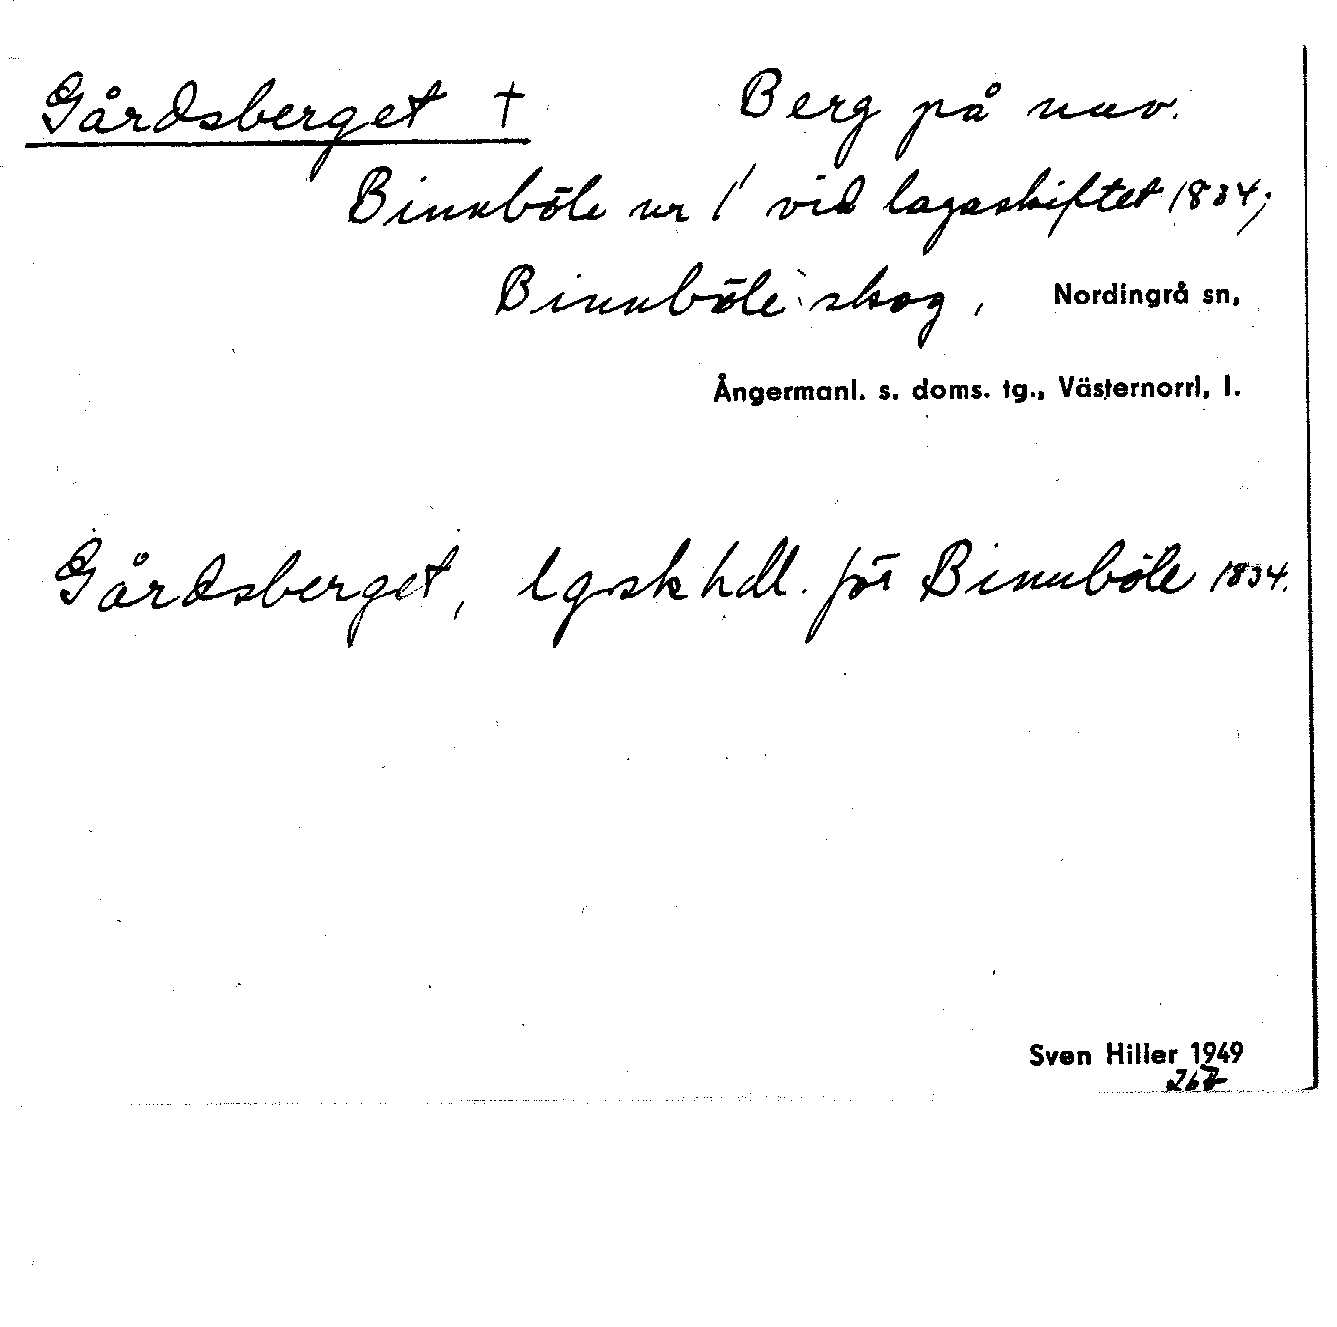 Gårdsberget † Berg på nuv.
Binnböle nr 1 vid lagaskiftet 1834;
Binnböle skog, Nordingrå sn,
Ångermanl. s. doms. tg., Västernorrl, l.
Gårdsberget, lgskhdl. för Binnböle 1834.
Sven Hiller 1949